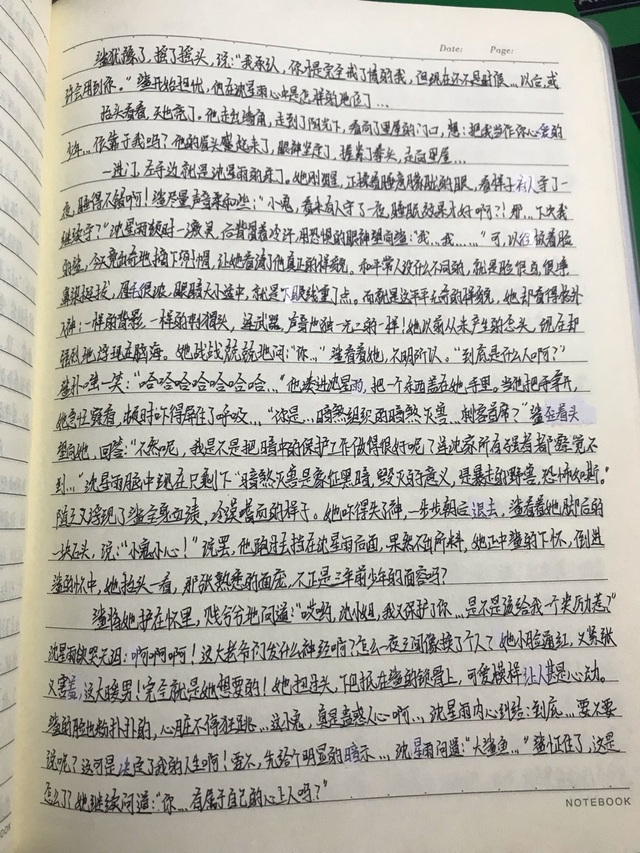 Date: Page:
鲨犹豫了，摇了摇头，说：“我承认，你才是完全戒了情的我，但现在还不是时候…以后，或
许会用到你。”鲨开始担忧，他在沈星雨心中是怎样的地位了…
抬头看看，天也亮了。他走出墙角，走到了阳光下，看向了里屋的门口，想：把我当作你心爱的
少年…依靠于我吗？他的眉头蹙起来了，眼神坚定了，握紧了拳头，走向里屋…
一进门，左手边就是沈星雨的床了。她刚醒，正揉着睡意朦胧的眼，看样子有人守了一
夜，睡得不错啊！鲨尽量声音柔和些：“小鬼，看来有人守了一夜，睡眠效果才好啊？！那…下次我
继续守？”沈星雨顿时一激灵，后背冒着冷汗，用恐惧的眼神望向鲨：“我…我……”可，以往板着脸
的鲨，今天竟出奇地摘下兜帽，让她看清了他真正的样貌，和平常人没什么不同的，就是脸很白，但
鼻梁挺拔，眉毛很浓，眼睛大小适中，就是下眼线重了点。而就是这平平无奇的样貌，她却看得格外
入神：一样的背影，一样的刺猬头，连武器，声音也独一无二的一样！她以前从未产生的念头，现在却
强烈地浮现在脑海。她战战兢兢地问：“你…”鲨看着她，不明所以。“到底是什么人啊？”
鲨扑嗤一笑：“哈哈哈哈哈哈哈…”他凑进沈星雨，把一个东西盖在她手里。当他把手拿开，
她急忙察看，顿时吓得屏住了呼吸…“你是…暗煞组织的暗煞灾害…刺客首席？”鲨歪着头
望向她，回答：“不然呢，我是不是把暗中的保护工作做得很好呢？连沈家所有强者都察觉不
到…”沈星雨脑中现在只剩下“暗煞灾害是象征黑暗，毁灭的意义，是暴走的野兽，恐怖如斯。”
随之又浮现了鲨全身血渍，冷漠嗜血的样子。她吓得失了神，一步步朝后退去，鲨看着她脚后的
一块石头，说：“小鬼小心！”说罢，他跑过去挡在沈星雨后面，果然不出所料，她正中鲨的下怀，倒进
鲨的怀中，她抬头一看，那张熟悉的面庞，不正是三年前少年的面容吗？
鲨将她护在怀里，贱兮兮地问道：“哎哟，沈小姐，我又保护了你…是不是该给我一个奖励惹？”
沈星雨欲哭无泪：啊啊啊啊！这大老爷们发什么神经啊？怎么一夜之间像换了个人？她小脸通红，又紧张
又害羞，这大暖男！完全就是她想要的！她扭过头，下巴抵在鲨的锁骨上，可爱模样让人甚是心动。
鲨的脸也粉扑扑的，心脏不停狂跳…这小鬼，真是蛊惑人心啊…沈星雨内心纠结：到底…要不要
说呢？这可是决定了我的人生啊！要不，先给个明显的暗示…沈星雨问道：“大鲨鱼…”鲨怔住了，这是
怎么了？她继续问道：“你…有属于自己的心上人吗？”
NOTEBOOK